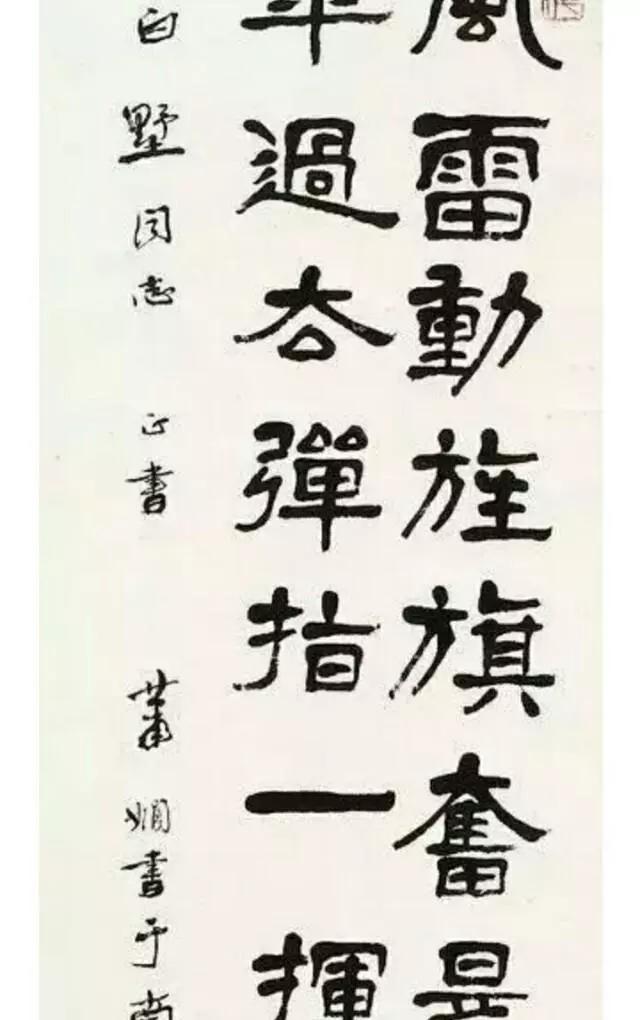 風雷動旌旗奮是
年過去彈指一揮
白墅同志 正書 蕭嫻書于南